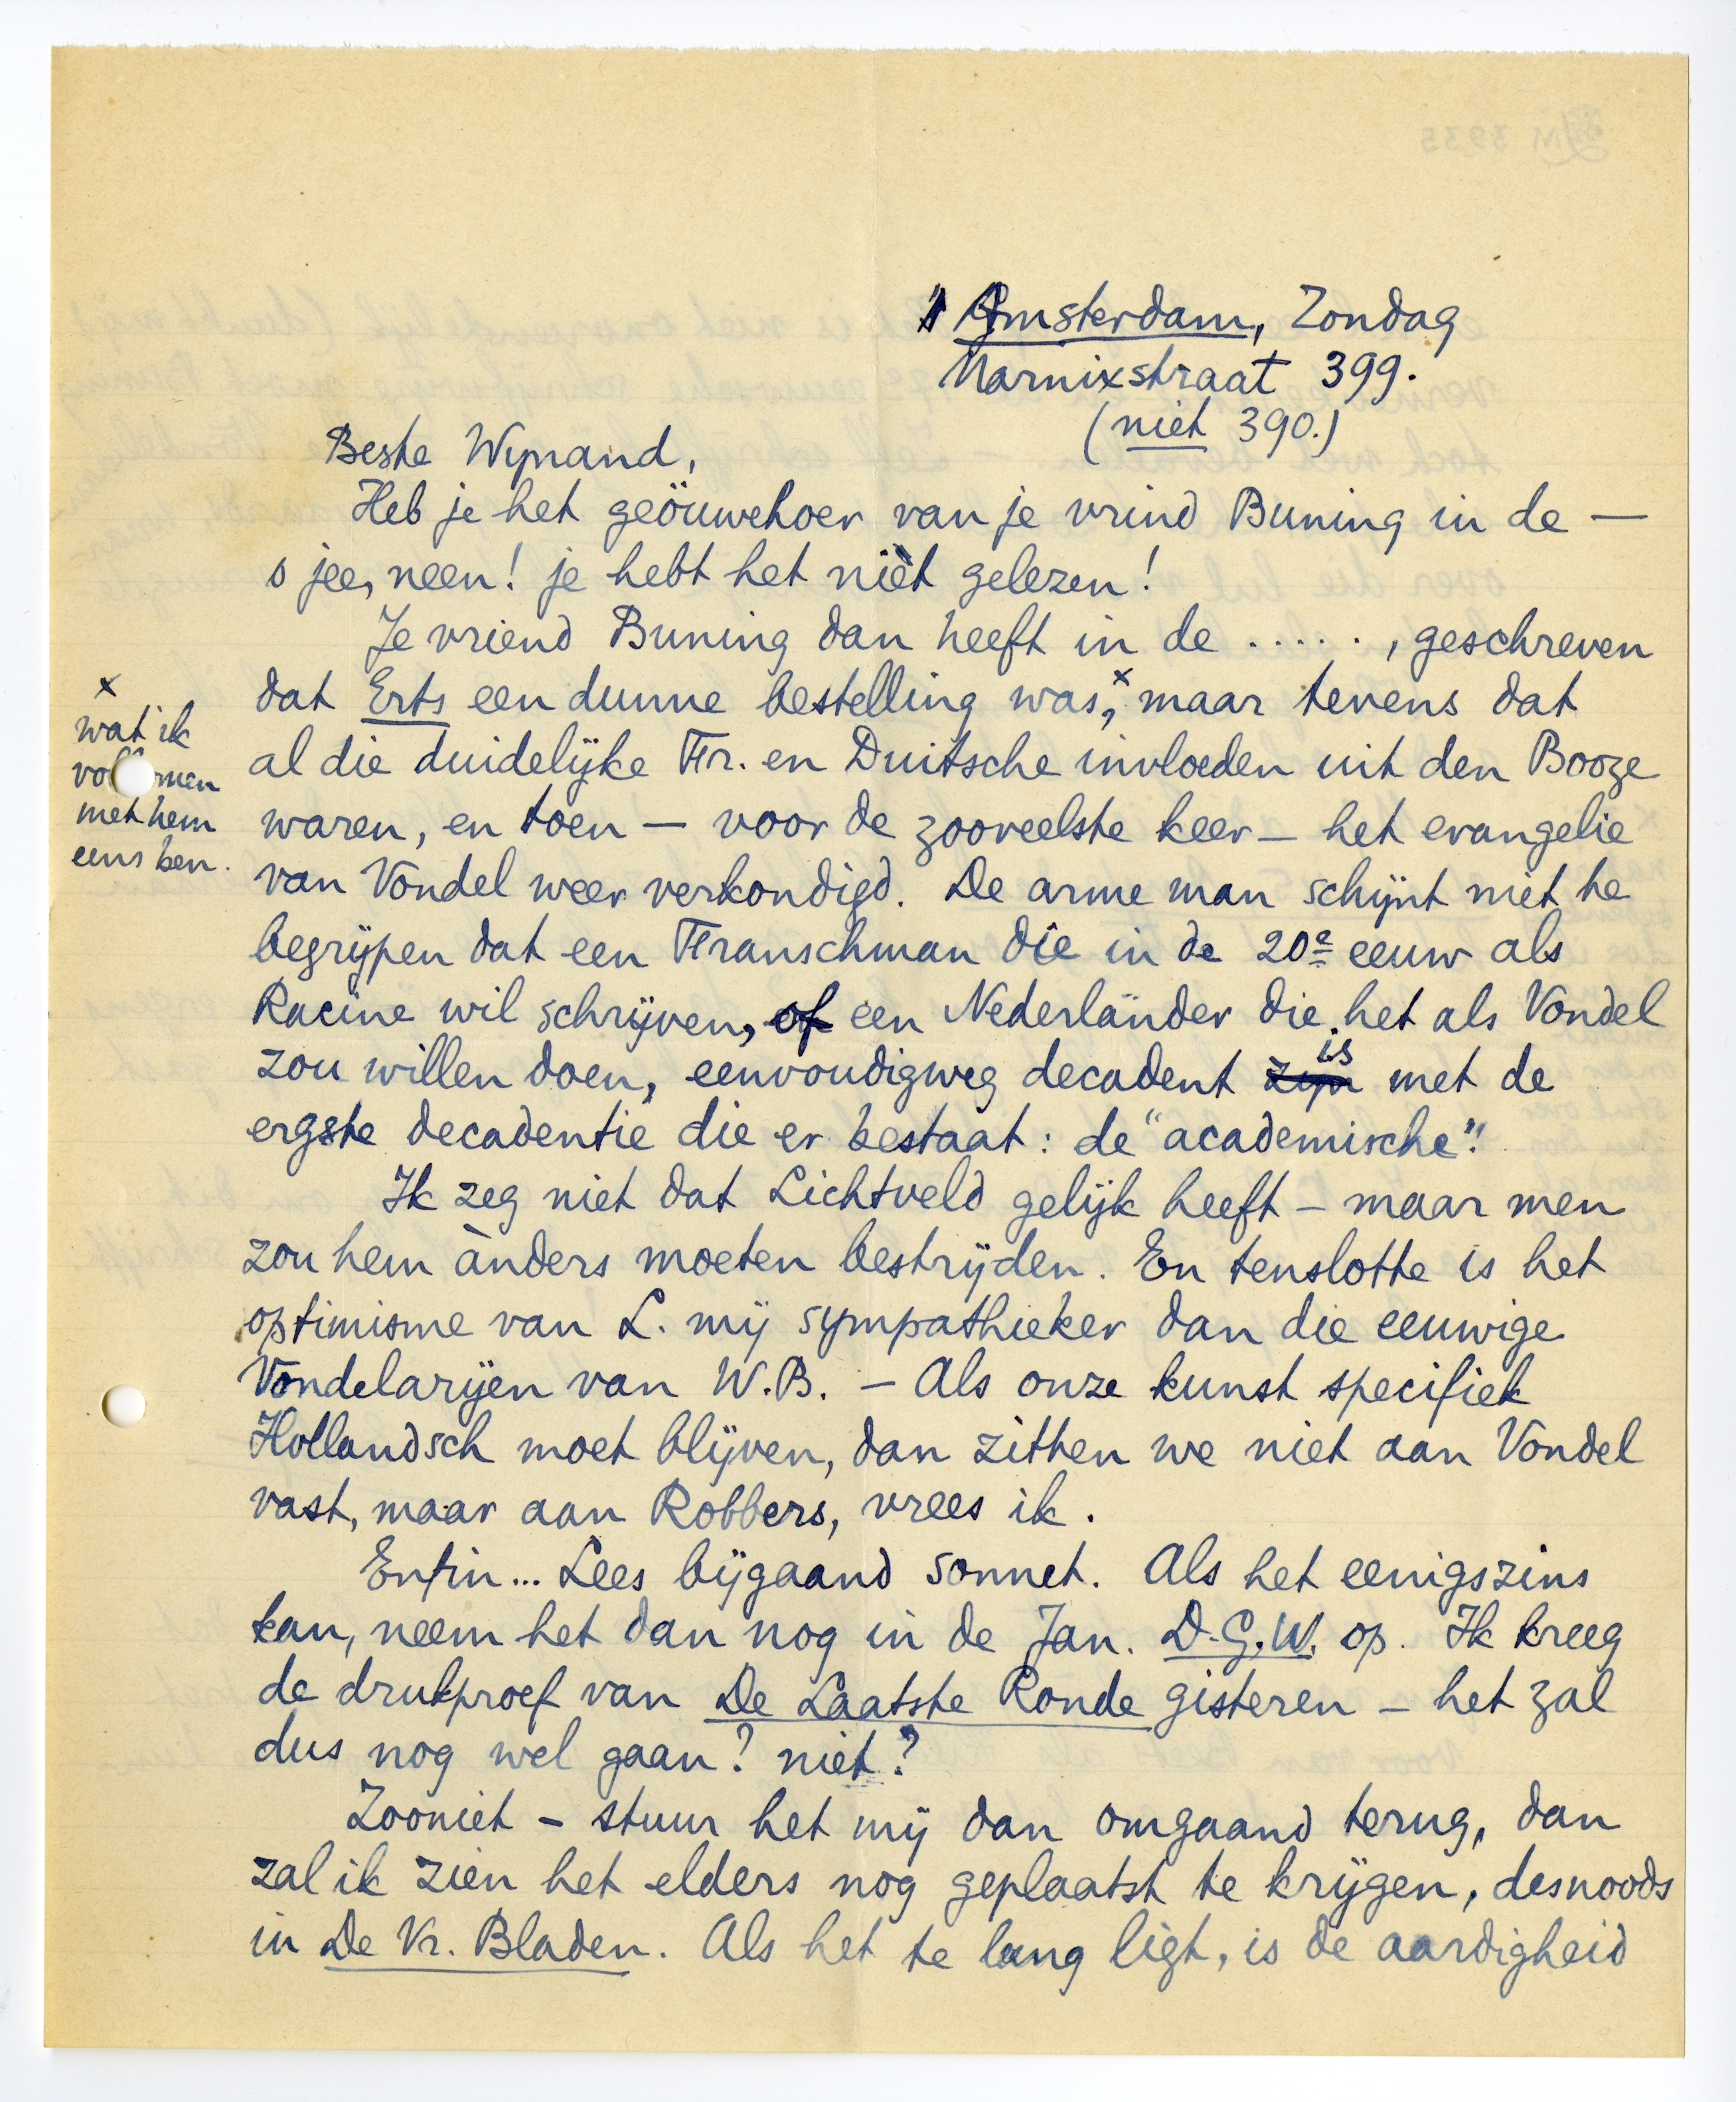 Amsterdam, Zondag
Marnixstraat 399.
(niet 390.)
Beste Wijnand,
Heb je het geöuwehoer van je vrind Buning in de —
o jee, neen! je hebt het niet gelezen!
Je vriend Buning dan heeft in de ....., geschreven
dat Erts een dunne bestelling was,ˣ maar tevens dat
al die duidelijke Fr. en Duitsche invloeden uit den Booze
waren, en toen — voor de zooveelste keer — het evangelie
van Vondel weer verkondigd. De arme man schijnt niet te
begrijpen dat een Franschman die in de 20e eeuw als
Racine wil schrijven, of een Nederlander die het als Vondel
zou willen doen, eenvoudigweg decadent zijn is met de
ergste decadentie die er bestaat: de "academische"!
Ik zeg niet dat Lichtveld gelijk heeft – maar men
zou hem ànders moeten bestrijden. En tenslotte is het
optimisme van L. mij sympathieker dan die eeuwige
Vondelarijen van W.B. – Als onze kunst specifiek
Hollandsch moet blijven, dan zitten we niet aan Vondel
vast, maar aan Robbers, vrees ik.
Enfin... Lees bijgaand sonnet. Als het eenigszins
kan, neem het dan nog in de Jan. D.G.W. op. Ik kreeg
de drukproef van De Laatste Ronde gisteren – het zal
dus nog wel gaan? niet?
Zooniet – stuur het mij dan omgaand terug, dan
zal ik zien het elders nog geplaatst te krijgen, desnoods
in De Vr. Bladen. Als het te lang ligt, is de aardigheid
x
wat ik
vol men
met hem
eens ben.